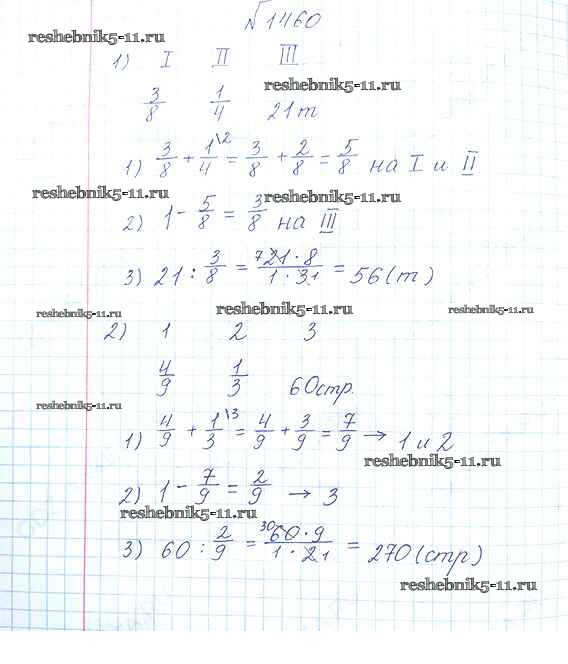 №1460
reshebnik5-11.ru
1) I II III
reshebnik5-11.ru
3/8 1/4 21 т
1) 3/8 + 1/4 \2 = 3/8 + 2/8 = 5/8 на I и II
reshebnik5-11.ru reshebnik5-11.ru
2) 1 - 5/8 = 3/8 на III
3) 21 : 3/8 = 7 21 · 8 / 1 · 3 1 = 56 (т)
reshebnik5-11.ru reshebnik5-11.ru reshebnik5-11.ru
2) 1 2 3
4/9 1/3 60стр.
reshebnik5-11.ru
1) 4/9 + 1/3 \3 = 4/9 + 3/9 = 7/9 → 1 и 2
reshebnik5-11.ru
2) 1 - 7/9 = 2/9 → 3
reshebnik5-11.ru
3) 60 : 2/9 = 30 60 · 9 / 1 · 2 1 = 270 (стр)
reshebnik5-11.ru